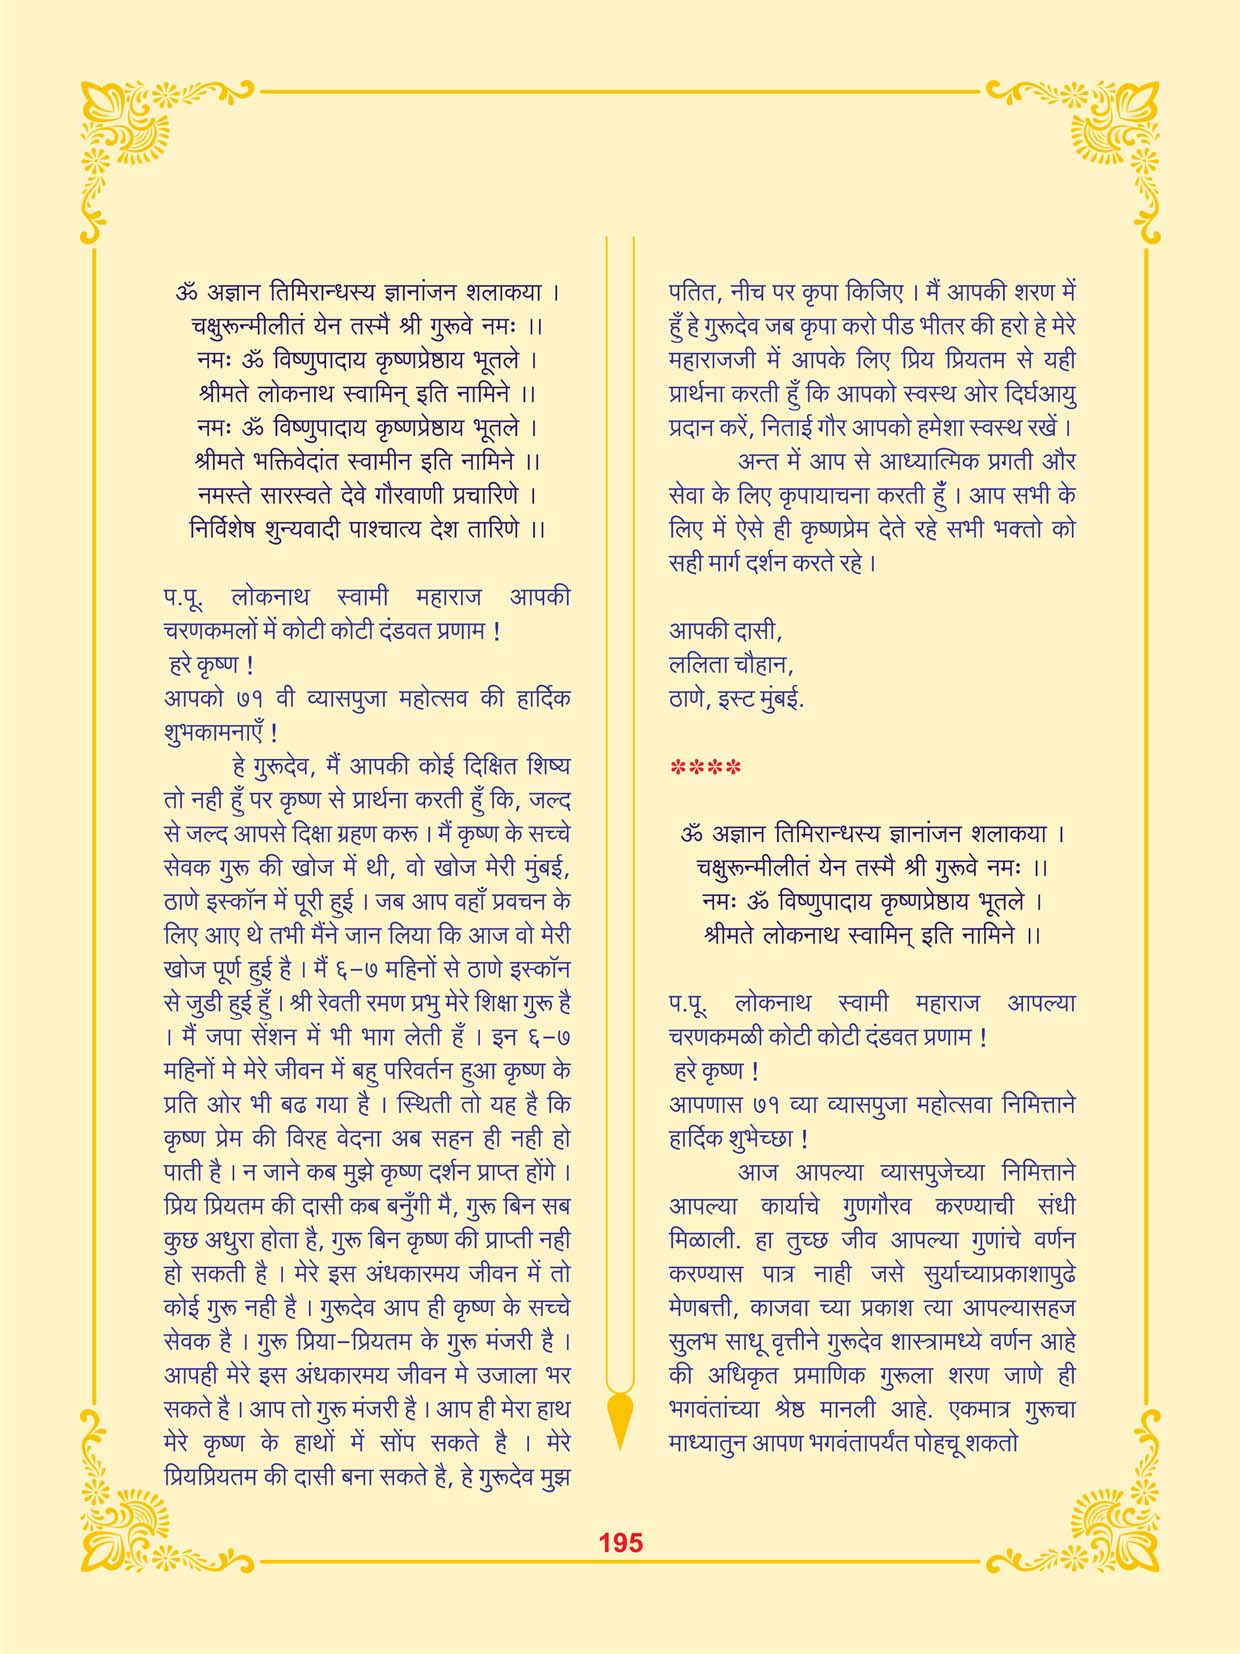 ॐ अज्ञान तिमिरान्धस्य ज्ञानांजन शलाकया ।
चक्षुरून्मीलीतं येन तस्मै श्री गुरूवे नमः ।।
नमः ॐ विष्णुपादाय कृष्णप्रेष्ठाय भूतले ।
श्रीमते लोकनाथ स्वामिन् इति नामिने ।।
नमः ॐ विष्णुपादाय कृष्णप्रेष्ठाय भूतले ।
श्रीमते भक्तिवेदांत स्वामीन इति नामिने ।।
नमस्ते सारस्वते देवे गौरवाणी प्रचारिणे ।
निर्विशेष शुन्यवादी पाश्चात्य देश तारिणे ।।
प.पू. लोकनाथ स्वामी महाराज आपकी
चरणकमलों में कोटी कोटी दंडवत प्रणाम !
हरे कृष्ण !
आपको ७१ वी व्यासपुजा महोत्सव की हार्दिक
शुभकामनाएँ !
हे गुरूदेव, मैं आपकी कोई दिक्षित शिष्य
तो नही हुँ पर कृष्ण से प्रार्थना करती हुँ कि, जल्द
से जल्द आपसे दिक्षा ग्रहण करू । मैं कृष्ण के सच्चे
सेवक गुरू की खोज में थी, वो खोज मेरी मुंबई,
ठाणे इस्कॉन में पूरी हुई । जब आप वहाँ प्रवचन के
लिए आए थे तभी मैंने जान लिया कि आज वो मेरी
खोज पूर्ण हुई है । मैं ६-७ महिनों से ठाणे इस्कॉन
से जुडी हुई हुँ । श्री रेवती रमण प्रभु मेरे शिक्षा गुरू है
। मैं जपा सेंशन में भी भाग लेती हँ । इन ६-७
महिनों मे मेरे जीवन में बहु परिवर्तन हुआ कृष्ण के
प्रति ओर भी बढ गया है । स्थिती तो यह है कि
कृष्ण प्रेम की विरह वेदना अब सहन ही नही हो
पाती है । न जाने कब मुझे कृष्ण दर्शन प्राप्त होंगे ।
प्रिय प्रियतम की दासी कब बनुँगी मै, गुरू बिन सब
कुछ अधुरा होता है, गुरू बिन कृष्ण की प्राप्ती नही
हो सकती है । मेरे इस अंधकारमय जीवन में तो
कोई गुरू नही है । गुरूदेव आप ही कृष्ण के सच्चे
सेवक है । गुरू प्रिया-प्रियतम के गुरू मंजरी है ।
आपही मेरे इस अंधकारमय जीवन मे उजाला भर
सकते है । आप तो गुरू मंजरी है । आप ही मेरा हाथ
मेरे कृष्ण के हाथों में सोंप सकते है । मेरे
प्रियप्रियतम की दासी बना सकते है, हे गुरूदेव मुझ
पतित, नीच पर कृपा किजिए । मैं आपकी शरण में
हुँ हे गुरूदेव जब कृपा करो पीड भीतर की हरो हे मेरे
महाराजजी में आपके लिए प्रिय प्रियतम से यही
प्रार्थना करती हुँ कि आपको स्वस्थ ओर दिर्घआयु
प्रदान करें, निताई गौर आपको हमेशा स्वस्थ रखें ।
अन्त में आप से आध्यात्मिक प्रगती और
सेवा के लिए कृपायाचना करती हुँ । आप सभी के
लिए में ऐसे ही कृष्णप्रेम देते रहे सभी भक्तो को
सही मार्ग दर्शन करते रहे ।
आपकी दासी,
ललिता चौहान,
ठाणे, इस्ट मुंबई.
****
ॐ अज्ञान तिमिरान्धस्य ज्ञानांजन शलाकया ।
चक्षुरून्मीलीतं येन तस्मै श्री गुरूवे नमः ।।
नमः ॐ विष्णुपादाय कृष्णप्रेष्ठाय भूतले ।
श्रीमते लोकनाथ स्वामिन् इति नामिने ।।
प.पू. लोकनाथ स्वामी महाराज आपल्या
चरणकमळी कोटी कोटी दंडवत प्रणाम !
हरे कृष्ण !
आपणास ७१ व्या व्यासपुजा महोत्सवा निमित्ताने
हार्दिक शुभेच्छा !
आज आपल्या व्यासपुजेच्या निमित्ताने
आपल्या कार्याचे गुणगौरव करण्याची संधी
मिळाली. हा तुच्छ जीव आपल्या गुणांचे वर्णन
करण्यास पात्र नाही जसे सुर्याच्याप्रकाशापुढे
मेणबत्ती, काजवा च्या प्रकाश त्या आपल्यासहज
सुलभ साधू वृत्तीने गुरूदेव शास्त्रामध्ये वर्णन आहे
की अधिकृत प्रमाणिक गुरूला शरण जाणे ही
भगवंतांच्या श्रेष्ठ मानली आहे. एकमात्र गुरूचा
माध्यातुन आपण भगवंतापर्यंत पोहचू शकतो
195